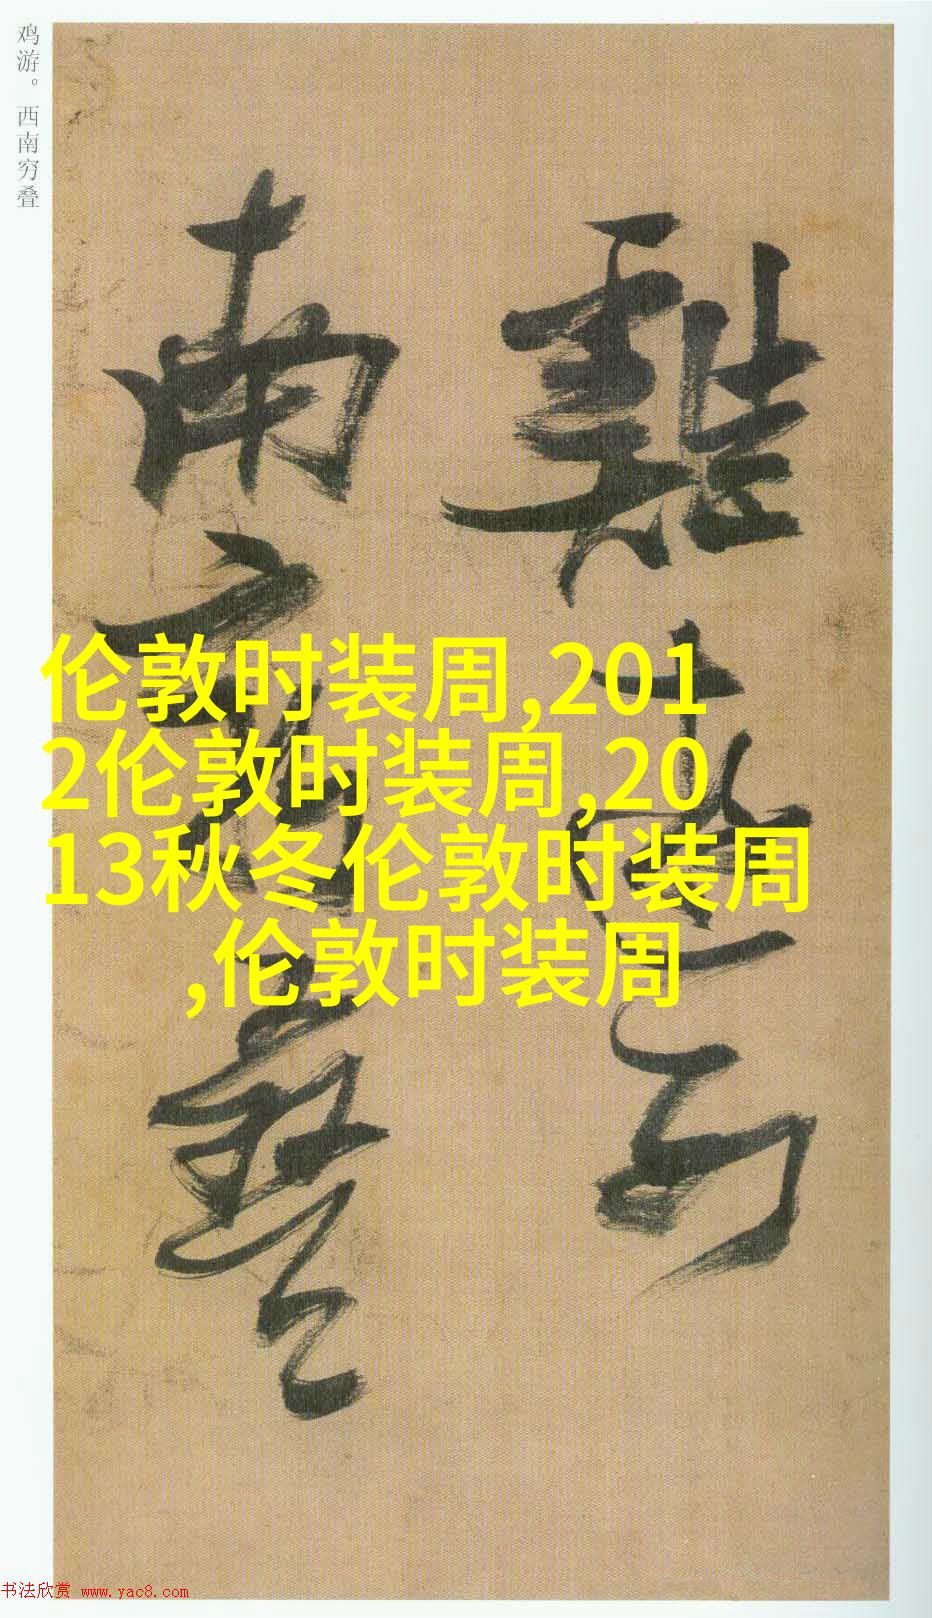 鸡游。西南穷叠
雞遊西
南窮疊
伦敦时装周,201
2伦敦时装周,20
13秋冬伦敦时装周
,伦敦时装周
书法欣赏 www.yac8.com